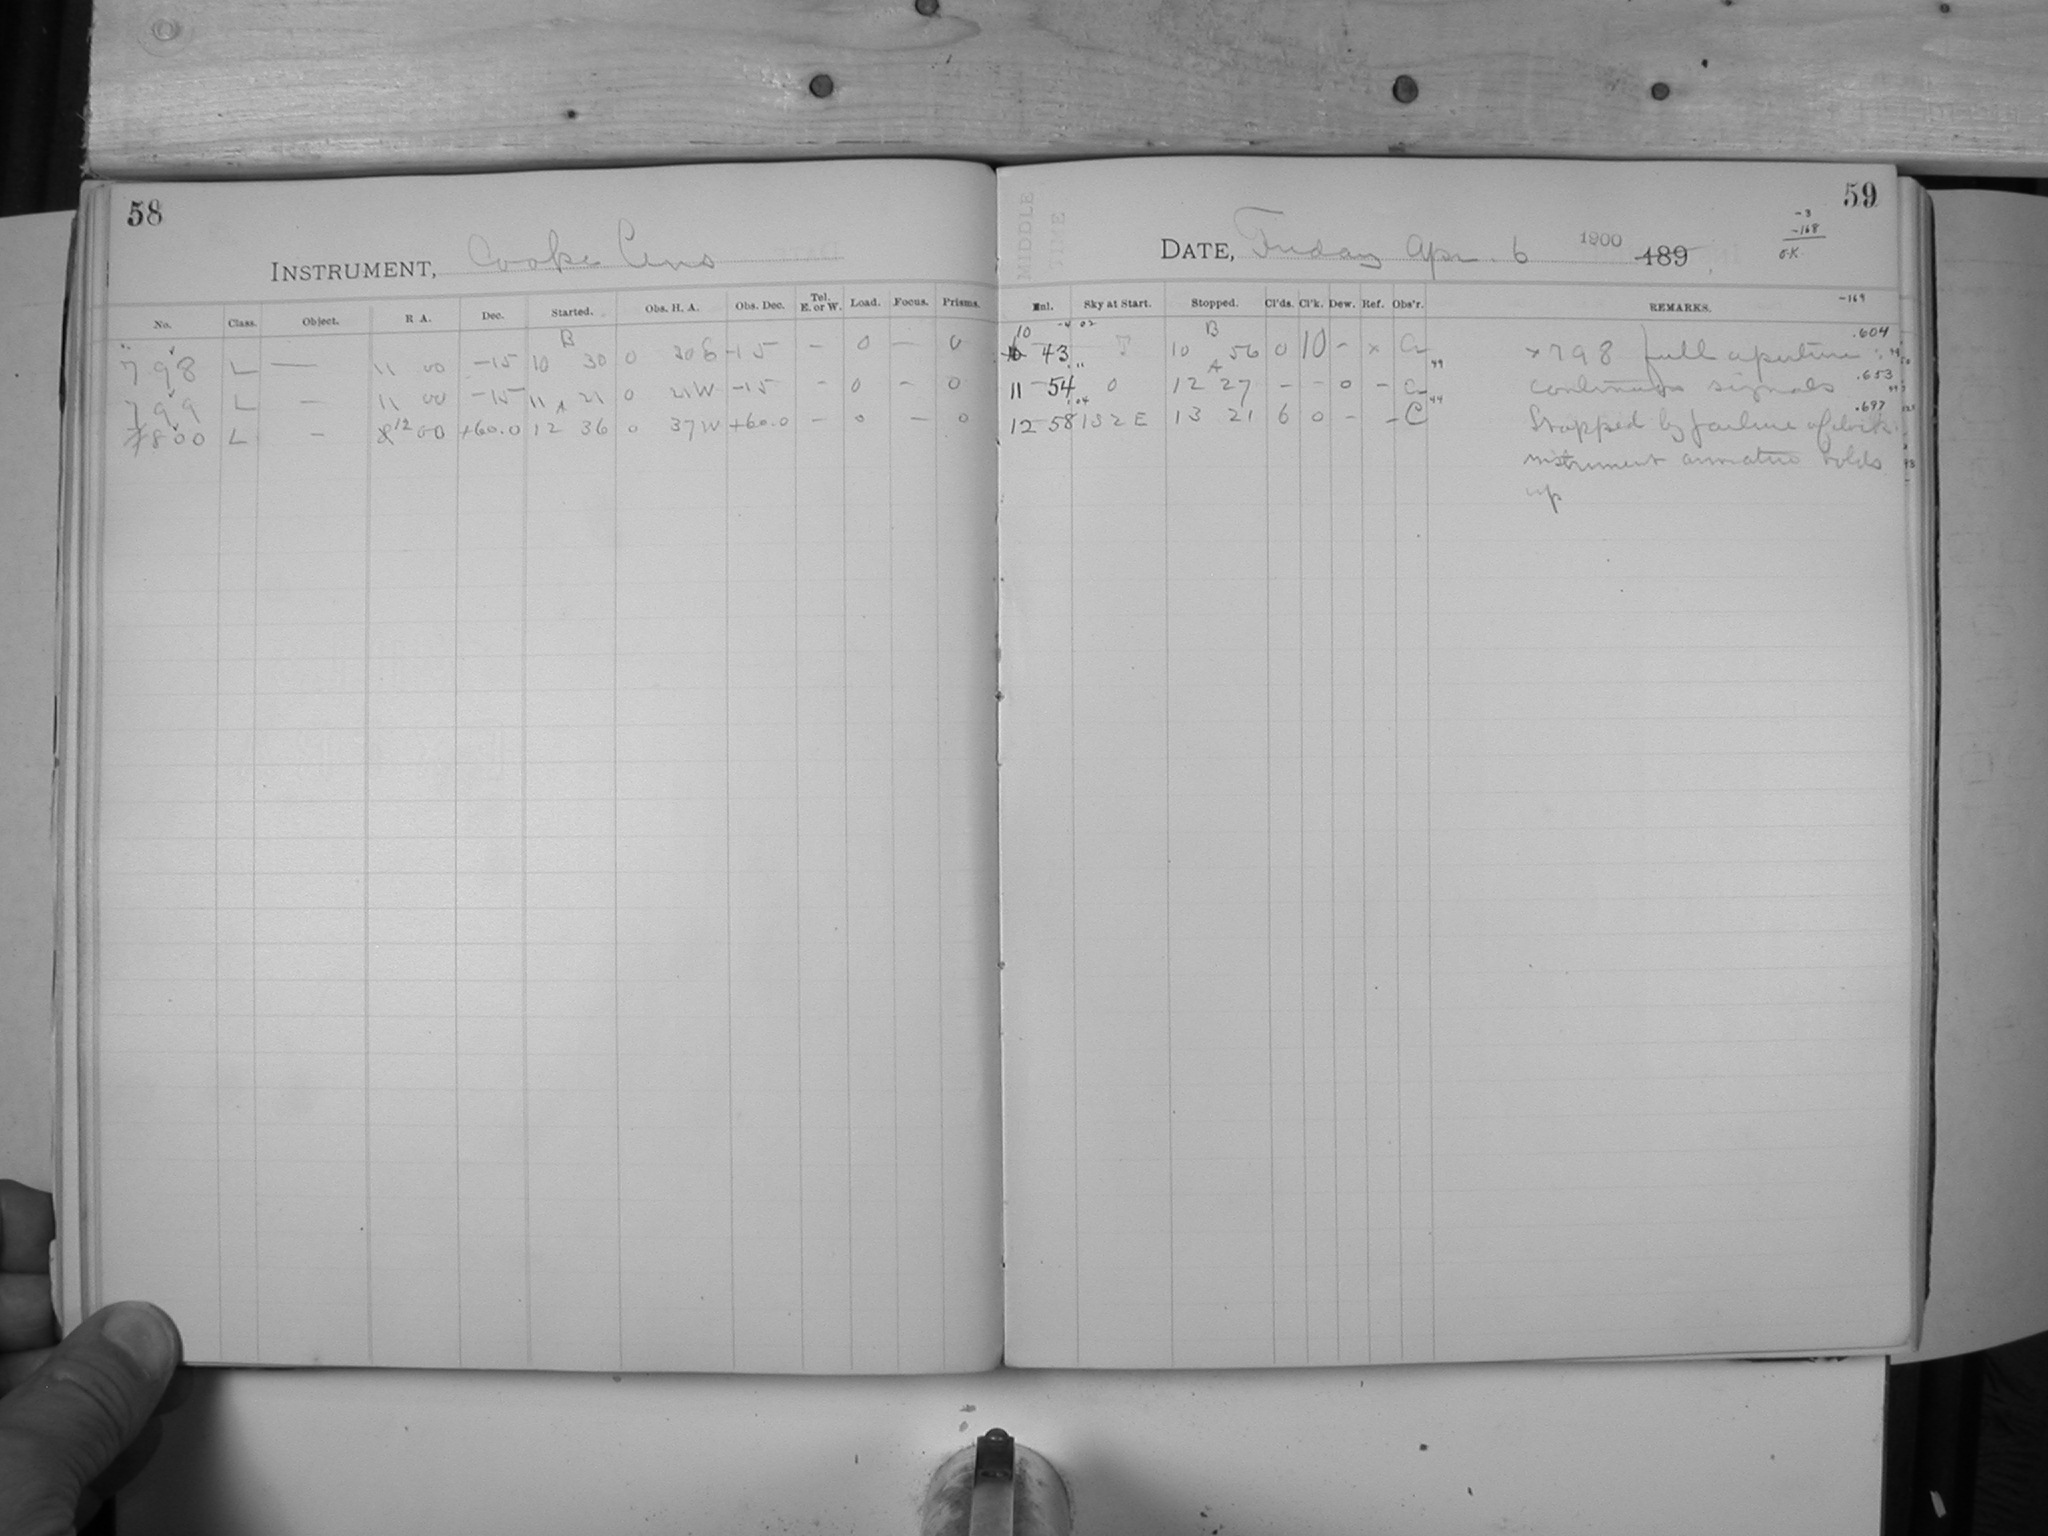 58
INSTRUMENT, Cooke Lens
No. Class. Object. R A. Dec. Started. Obs. H. A. Obs. Dec. Tel. E. or W. Load. Focus. Prisms.
B
798 L — 11 00 -15 10 30 0 30E -15 — 0 — 0
799 L — 11 00 -15 11 A 21 0 21W -15 — 0 — 0
800 L — 12 00 +60.0 12 36 0 37W +60.0 — 0 — 0
59
MIDDLE TIME
DATE, Friday Apr. 6 1900 189
-3
-168
O.K.
-169
Sky at Start. Stopped. Cl'ds. Cl'k. Dew. Ref. Obs'r. REMARKS.
10 43 B 10 56 0 10 - x ×798 full aperture .604
11 54 0 A 12 27 - - 0 - continuous signals .653
12 58 1S2E 13 21 6 0 - - C Stopped by failure of clock .697
instrument armature holds
up